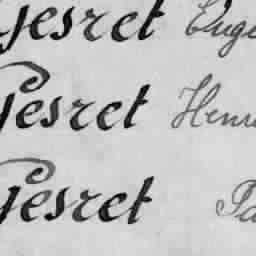 Gesret Euge
Gesret Henr
Gesret Pa